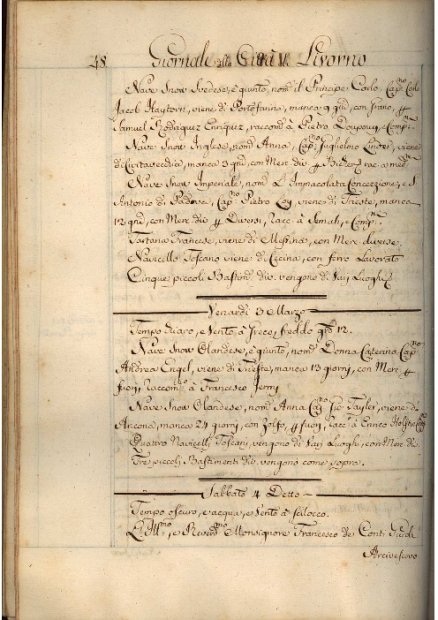 48 Giornale della Città di Livorno
Nave Snow Svedese, è giunto, nom: il Principe Carlo, Cap:no
Jacob Haytorn, viene di Porto Fanno, manca 9 gni, con Grano, p
Samuel Rodriguez Enriquez, raccond: à Pietro
Nave Snow Inglese, nom: Anna, Cap: Guglielmo Linder, viene
di Civitavecchia, manca 9 gni, con Merc: div: p racc: a med:
Nave Snow Imperiale, nom: L'Immacolata Concezzione, e S
Antonio di Padova, Cap:no Pietro viene di Trieste, manca
12 gni, con Merc: div: p Diversi, racc: à
Tartana Francese, viene di Messina, con Merc: diverse
Navicello Toscano viene di Cecina, con ferro Lavorato
Cinque piccoli Bastim: div: vengono di Suij Luoghi
Venerdì 3 Marzo
Tempo Chiaro, e Vento à Greco, freddo 12.
Nave Snow Olandese, è giunto, nom: Donna Caterina Cap:no
Andrea Engel, viene di Trieste, manca 13 giorni, con Merc: p
fuori, Raccom:to à Francesco Jermy
Nave Snow Olandese, nom: Anna Cap: Tayler, viene di
Ancona, manca 24 giorni, con Zolfo, p fuori, racc: à Enrico
Quattro Navicelli Toscani, vengono di Suij Luoghi, con Merc: di:
Tre piccoli Bastimenti div: vengono come sopra.
Sabbato 4 Detto
Tempo oscuro, e acqua, e Vento à Scilocco.
L'Ill:mo, e Rever:mo Monsignore Francesco de Conti Guidi
Arcivescovo